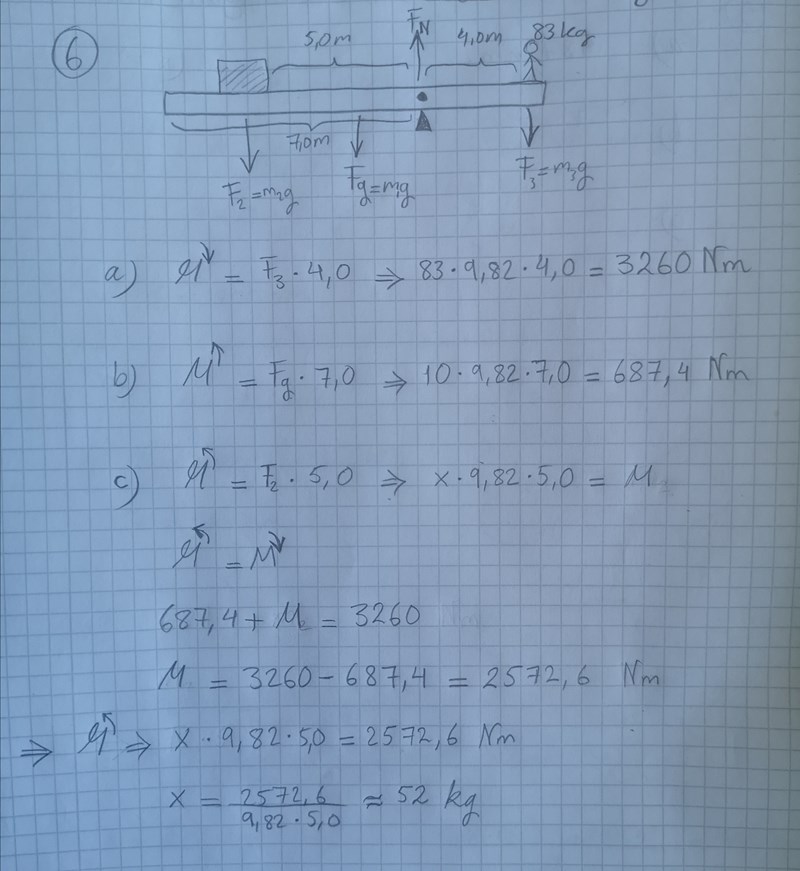 6
5,0m
F_N
4,0m
83kg
7,0m
F₂=m₂g
Fg=m₁g
F₃=m₃g
a) M = F₃ · 4,0 ⇒ 83·9,82·4,0 = 3260 Nm
b) M = Fg · 7,0 ⇒ 10·9,82·7,0 = 687,4 Nm
c) M = F₂ · 5,0 ⇒ x·9,82·5,0 = M
M = M
687,4 + M = 3260
M = 3260 - 687,4 = 2572,6 Nm
⇒ M ⇒ x · 9,82·5,0 = 2572,6 Nm
x = 2572,6 / 9,82·5,0 ≈ 52 kg